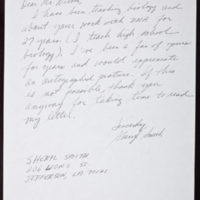 I have been teaching biology and
about your work with DNA for
27 years. (I teach high school
biology). I've been a fan of yours
for years and would appreciate
an autographed picture. If this
is not possible, thank you
anyway for taking time to read
my letter.
Sincerely
Sheryl Smith
SHERYL SMITH
JEFFERSON, LA